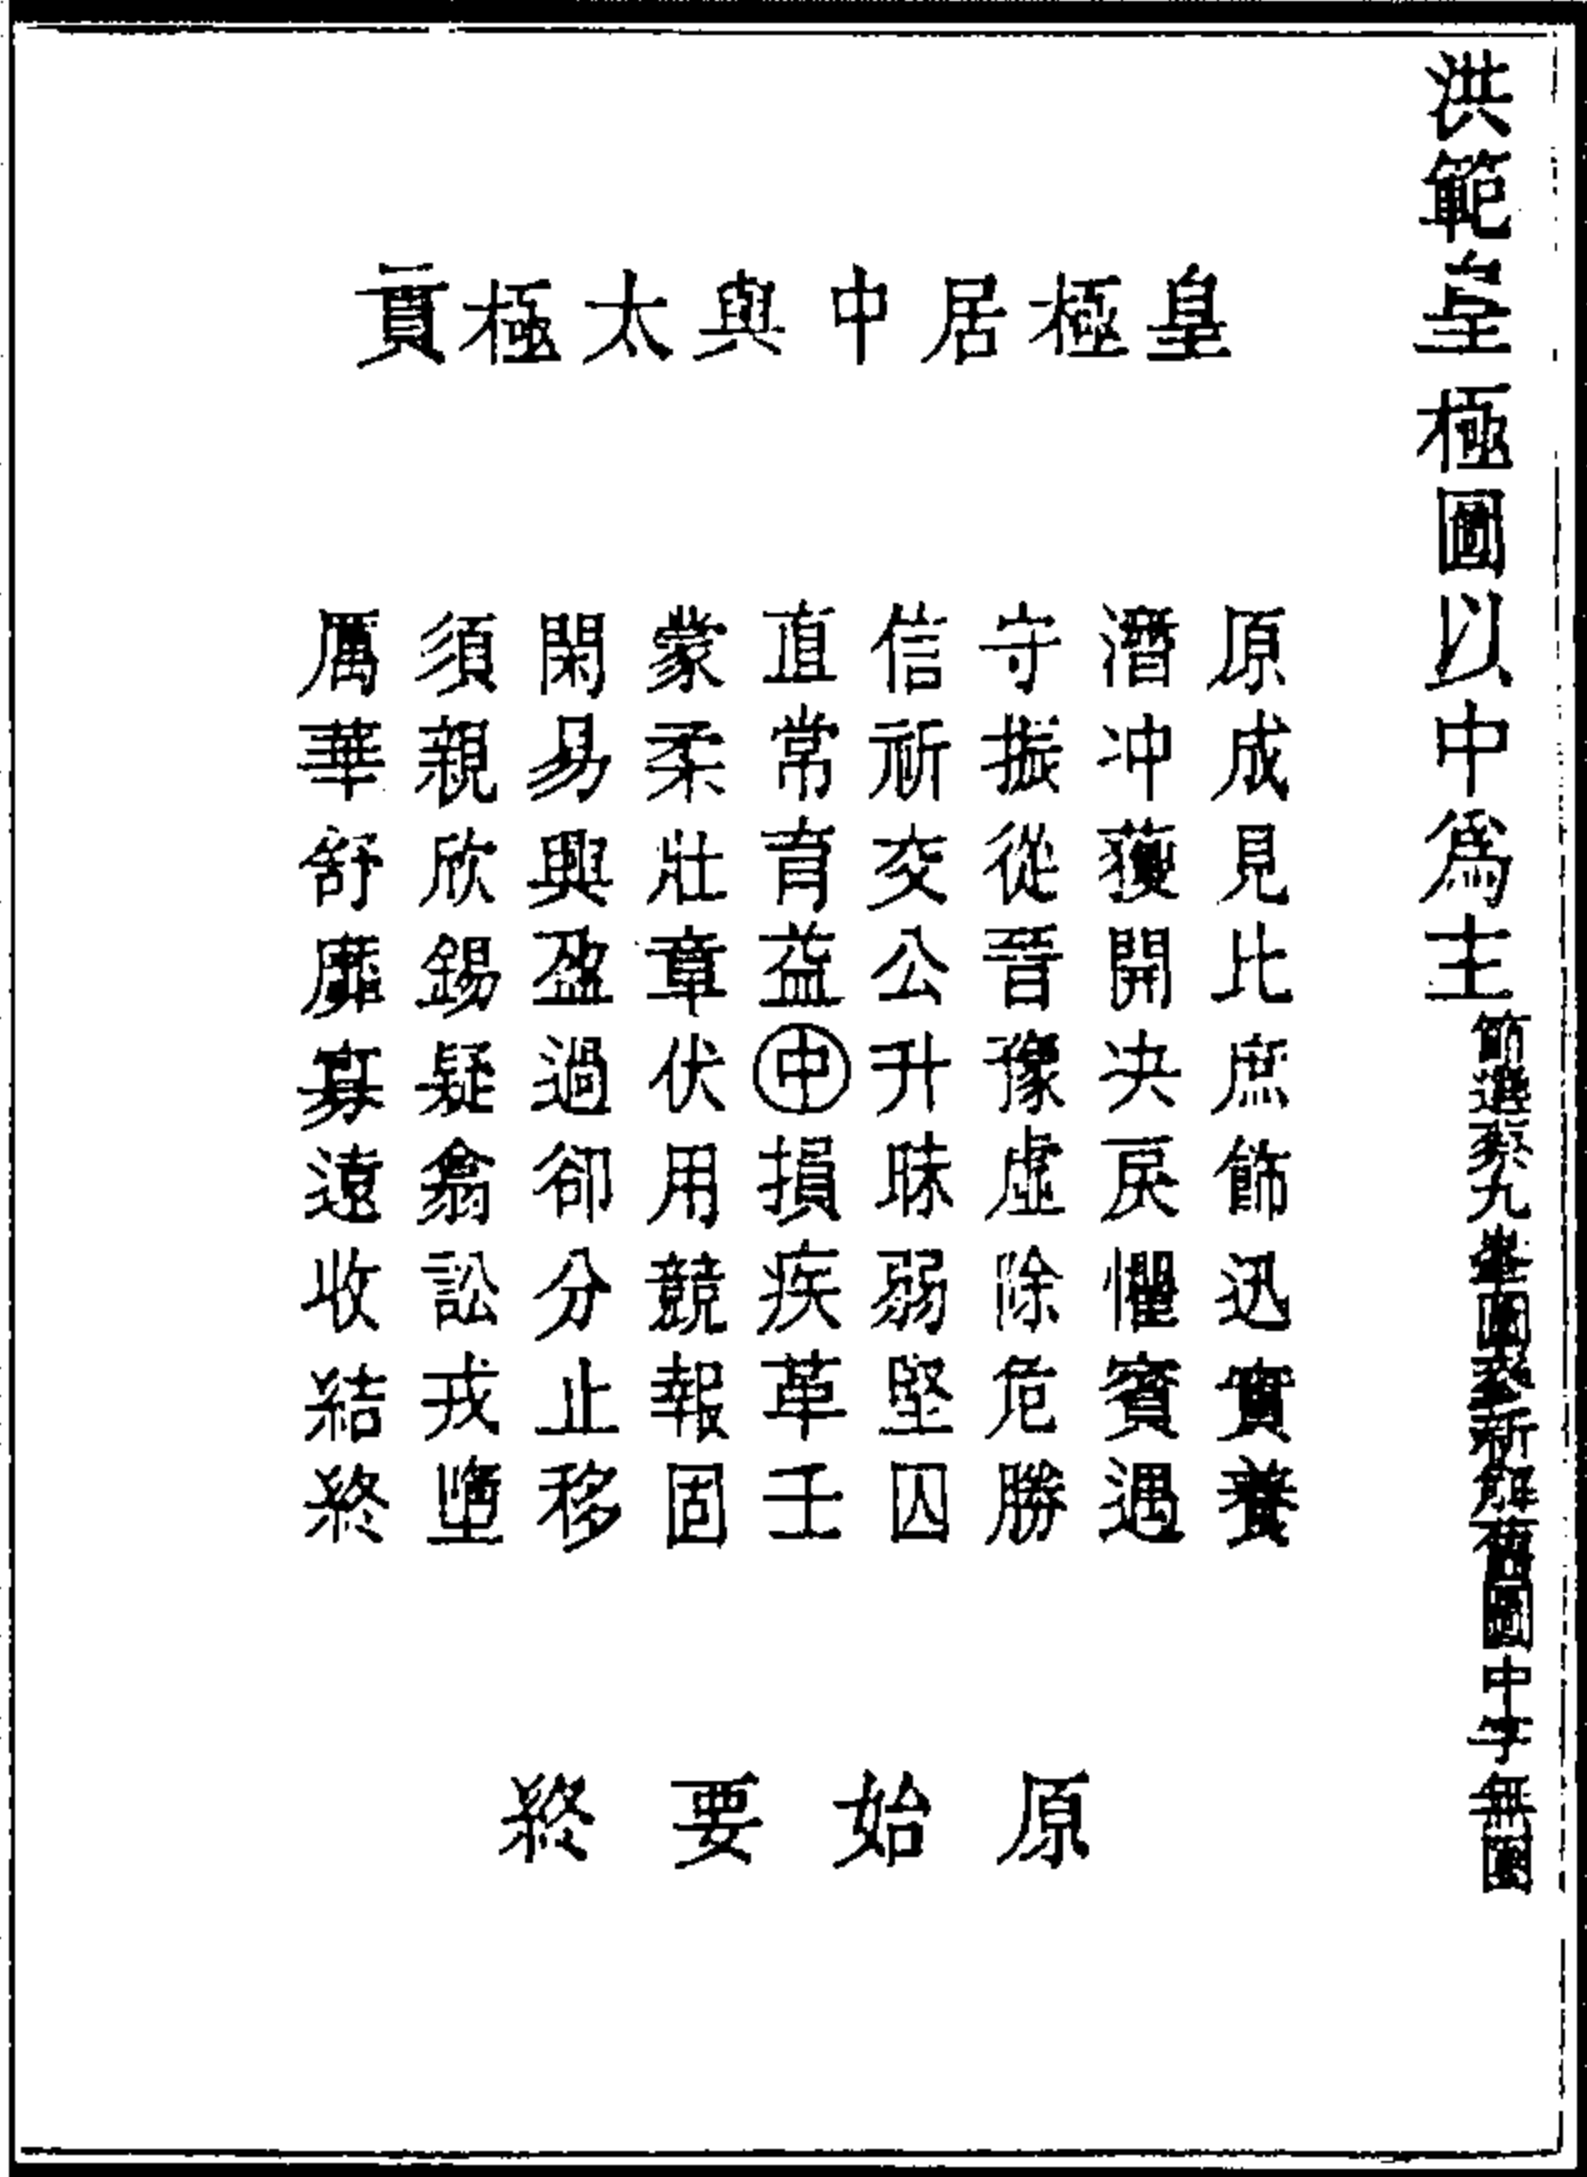 洪範皇極圖以中爲主 選蔡九峯圖新解舊圖中字無
皇極居中與太極一貫
原成見比庶飾迅實養
潛冲獲開决戾懼賓遇
守振從晉豫虛除危勝
信祈交公升昧弱堅囚
直常育益中損疾革壬
蒙柔壯章伏用競報固
閑易興盈過卻分止移
須親欣錫疑翕訟戎墮
厲華舒靡寡遠收結終
原始要終